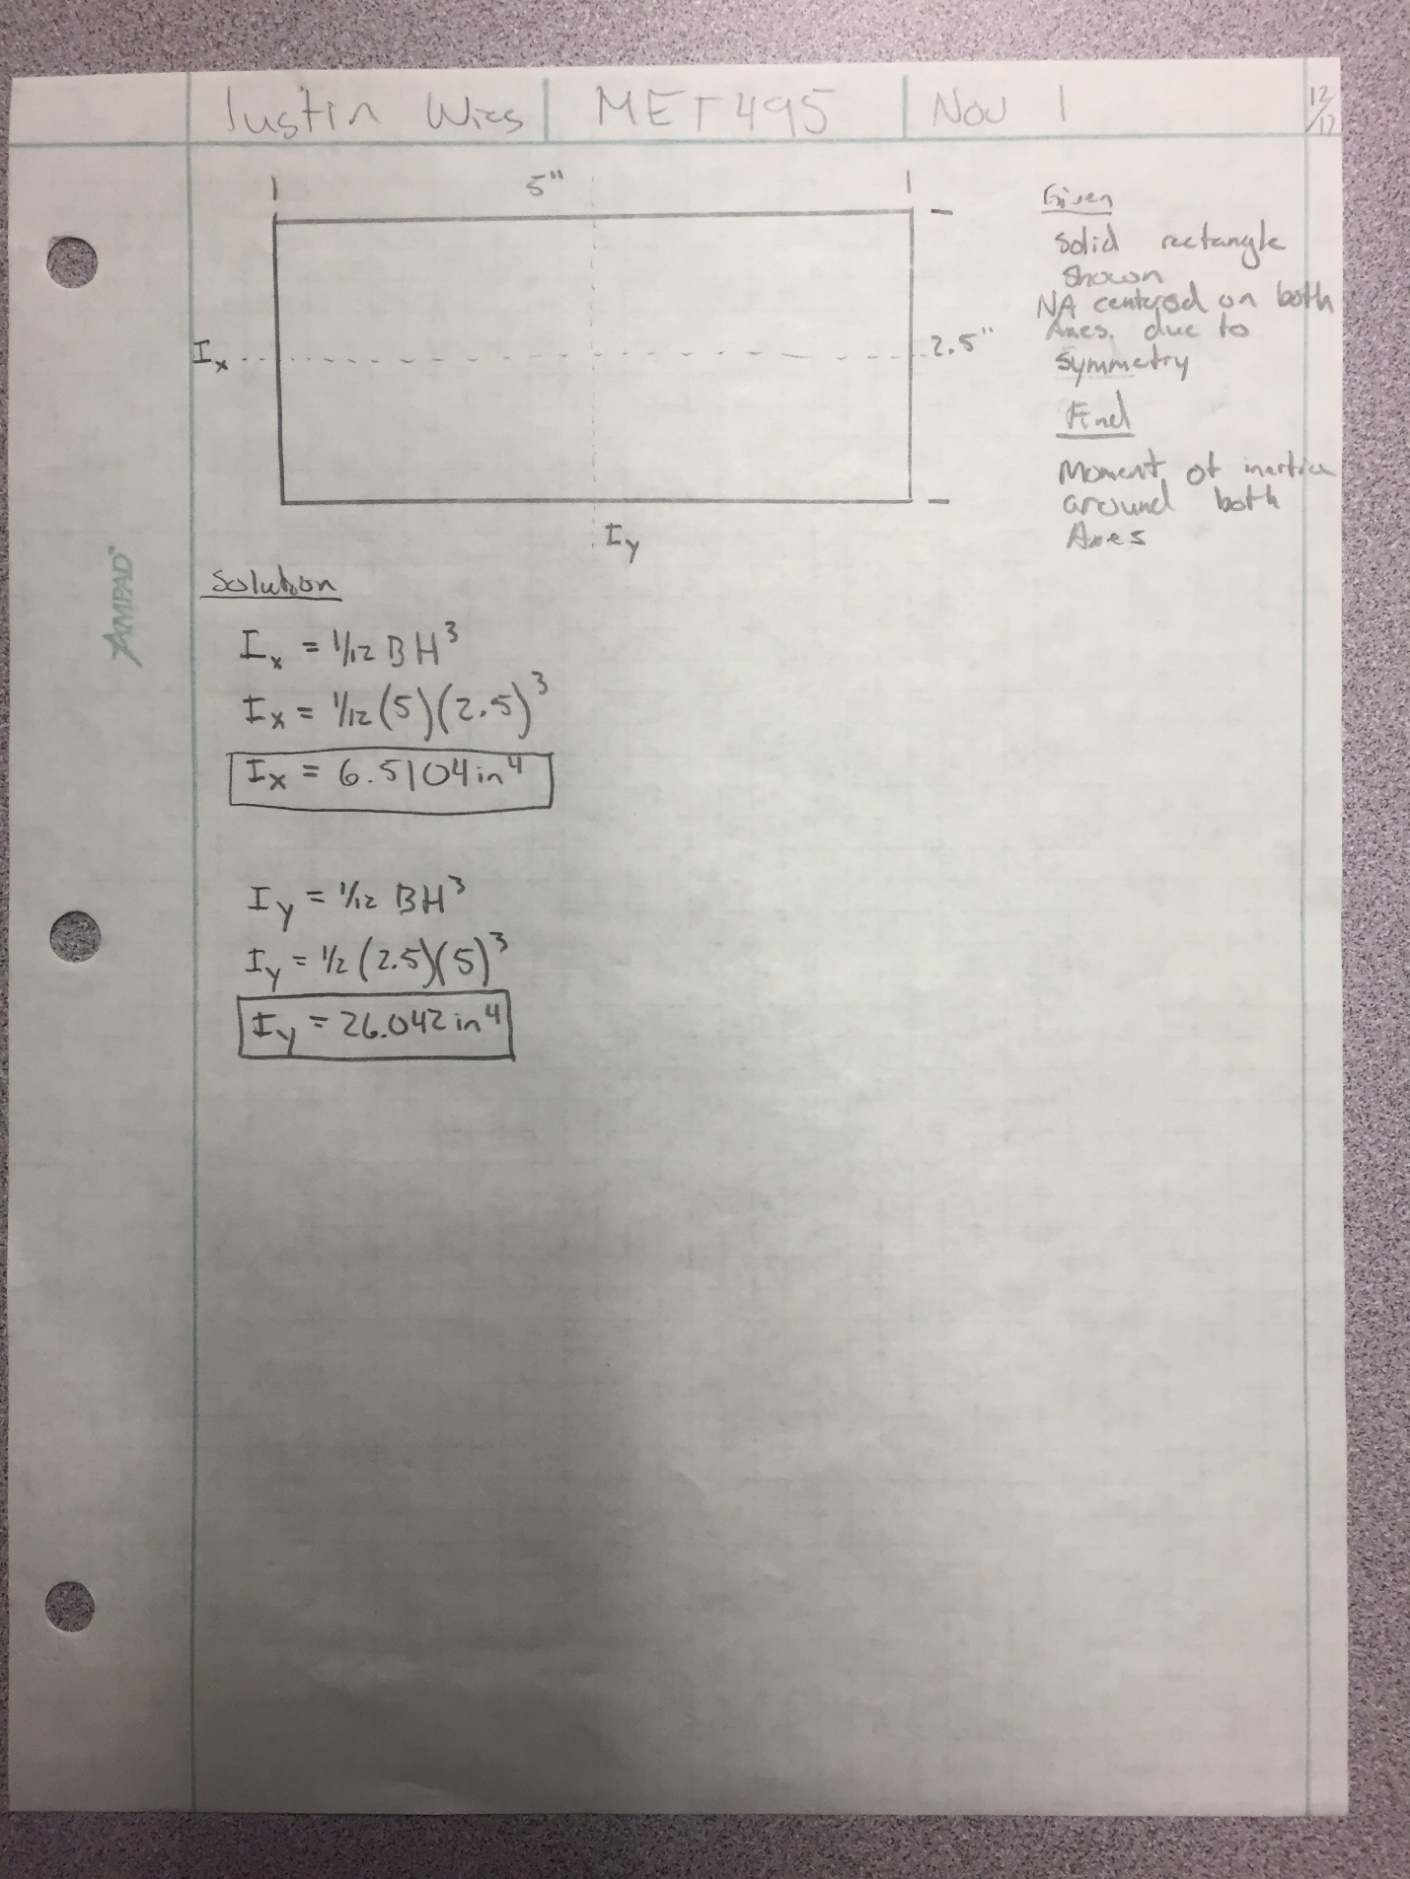 Justin Wies | MET 495 | Nov 1 12/17
5"
Given
Solid rectangle
shown
NA centered on both
Axes. due to
symmetry
Ix
2.5"
Find
Moment of inertia
around both
Axes
Iy
AMPAD™
Solution
Ix = 1/12 BH³
Ix = 1/12 (5)(2.5)³
Ix = 6.5104 in⁴
Iy = 1/12 BH³
Iy = 1/2 (2.5)(5)³
Iy = 26.042 in⁴